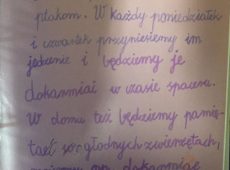 ptakom. W każdy poniedziałek
i czwartek przyniesiemy im
jedzenie i będziemy je
dokarmiać w czasie spaceru.
W domu też będziemy pamię-
tać o głodnych zwierzętach,
np. dokarmiając